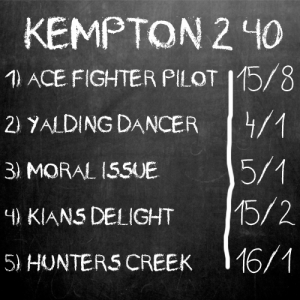 KEMPTON 2 40
1) ACE FIGHTER PILOT 15/8
2) YALDING DANCER 4/1
3) MORAL ISSUE 5/1
4) KIANS DELIGHT 15/2
5) HUNTERS CREEK 16/1